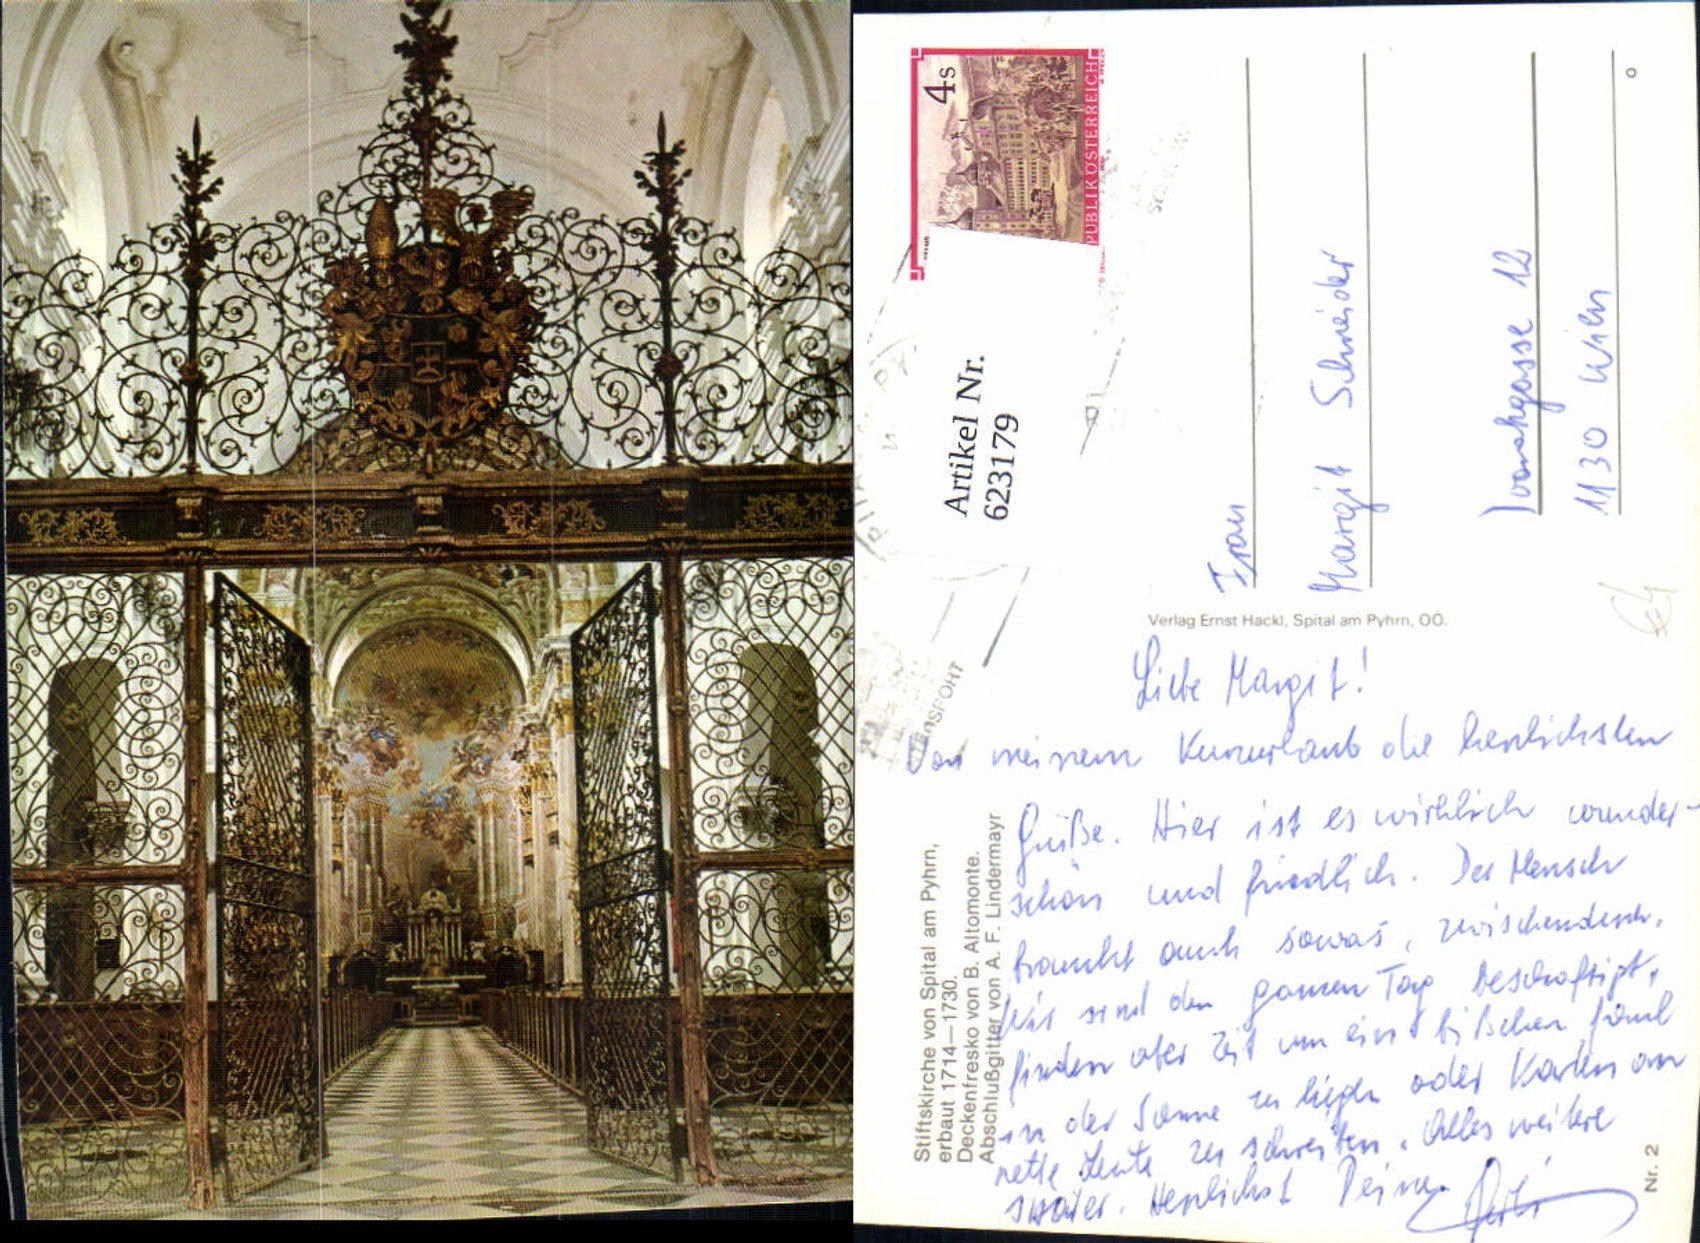 4 s
REPUBLIK ÖSTERREICH
Artikel Nr.
623179
Frau
Margit Schneider
1130 Wien
Verlag Ernst Hackl, Spital am Pyhrn, OÖ.
Liebe Margit!
Von meinem Kurzurlaub die herrlichsten
Grüße. Hier ist es wirklich wunder-
schön und friedlich. Der Mensch
braucht auch sowas, zwischendurch.
Wir sind den ganzen Tag beschäftigt,
finden aber Zeit um ein bißchen faul
in der Sonne zu liegen oder Karten an
nette Leute zu schreiben. Alles weitere
später. Herzlichst Deine
Stiftskirche von Spital am Pyhrn,
erbaut 1714—1730.
Deckenfresko von B. Altomonte.
Abschlußgitter von A. F. Lindermayr
Nr. 2